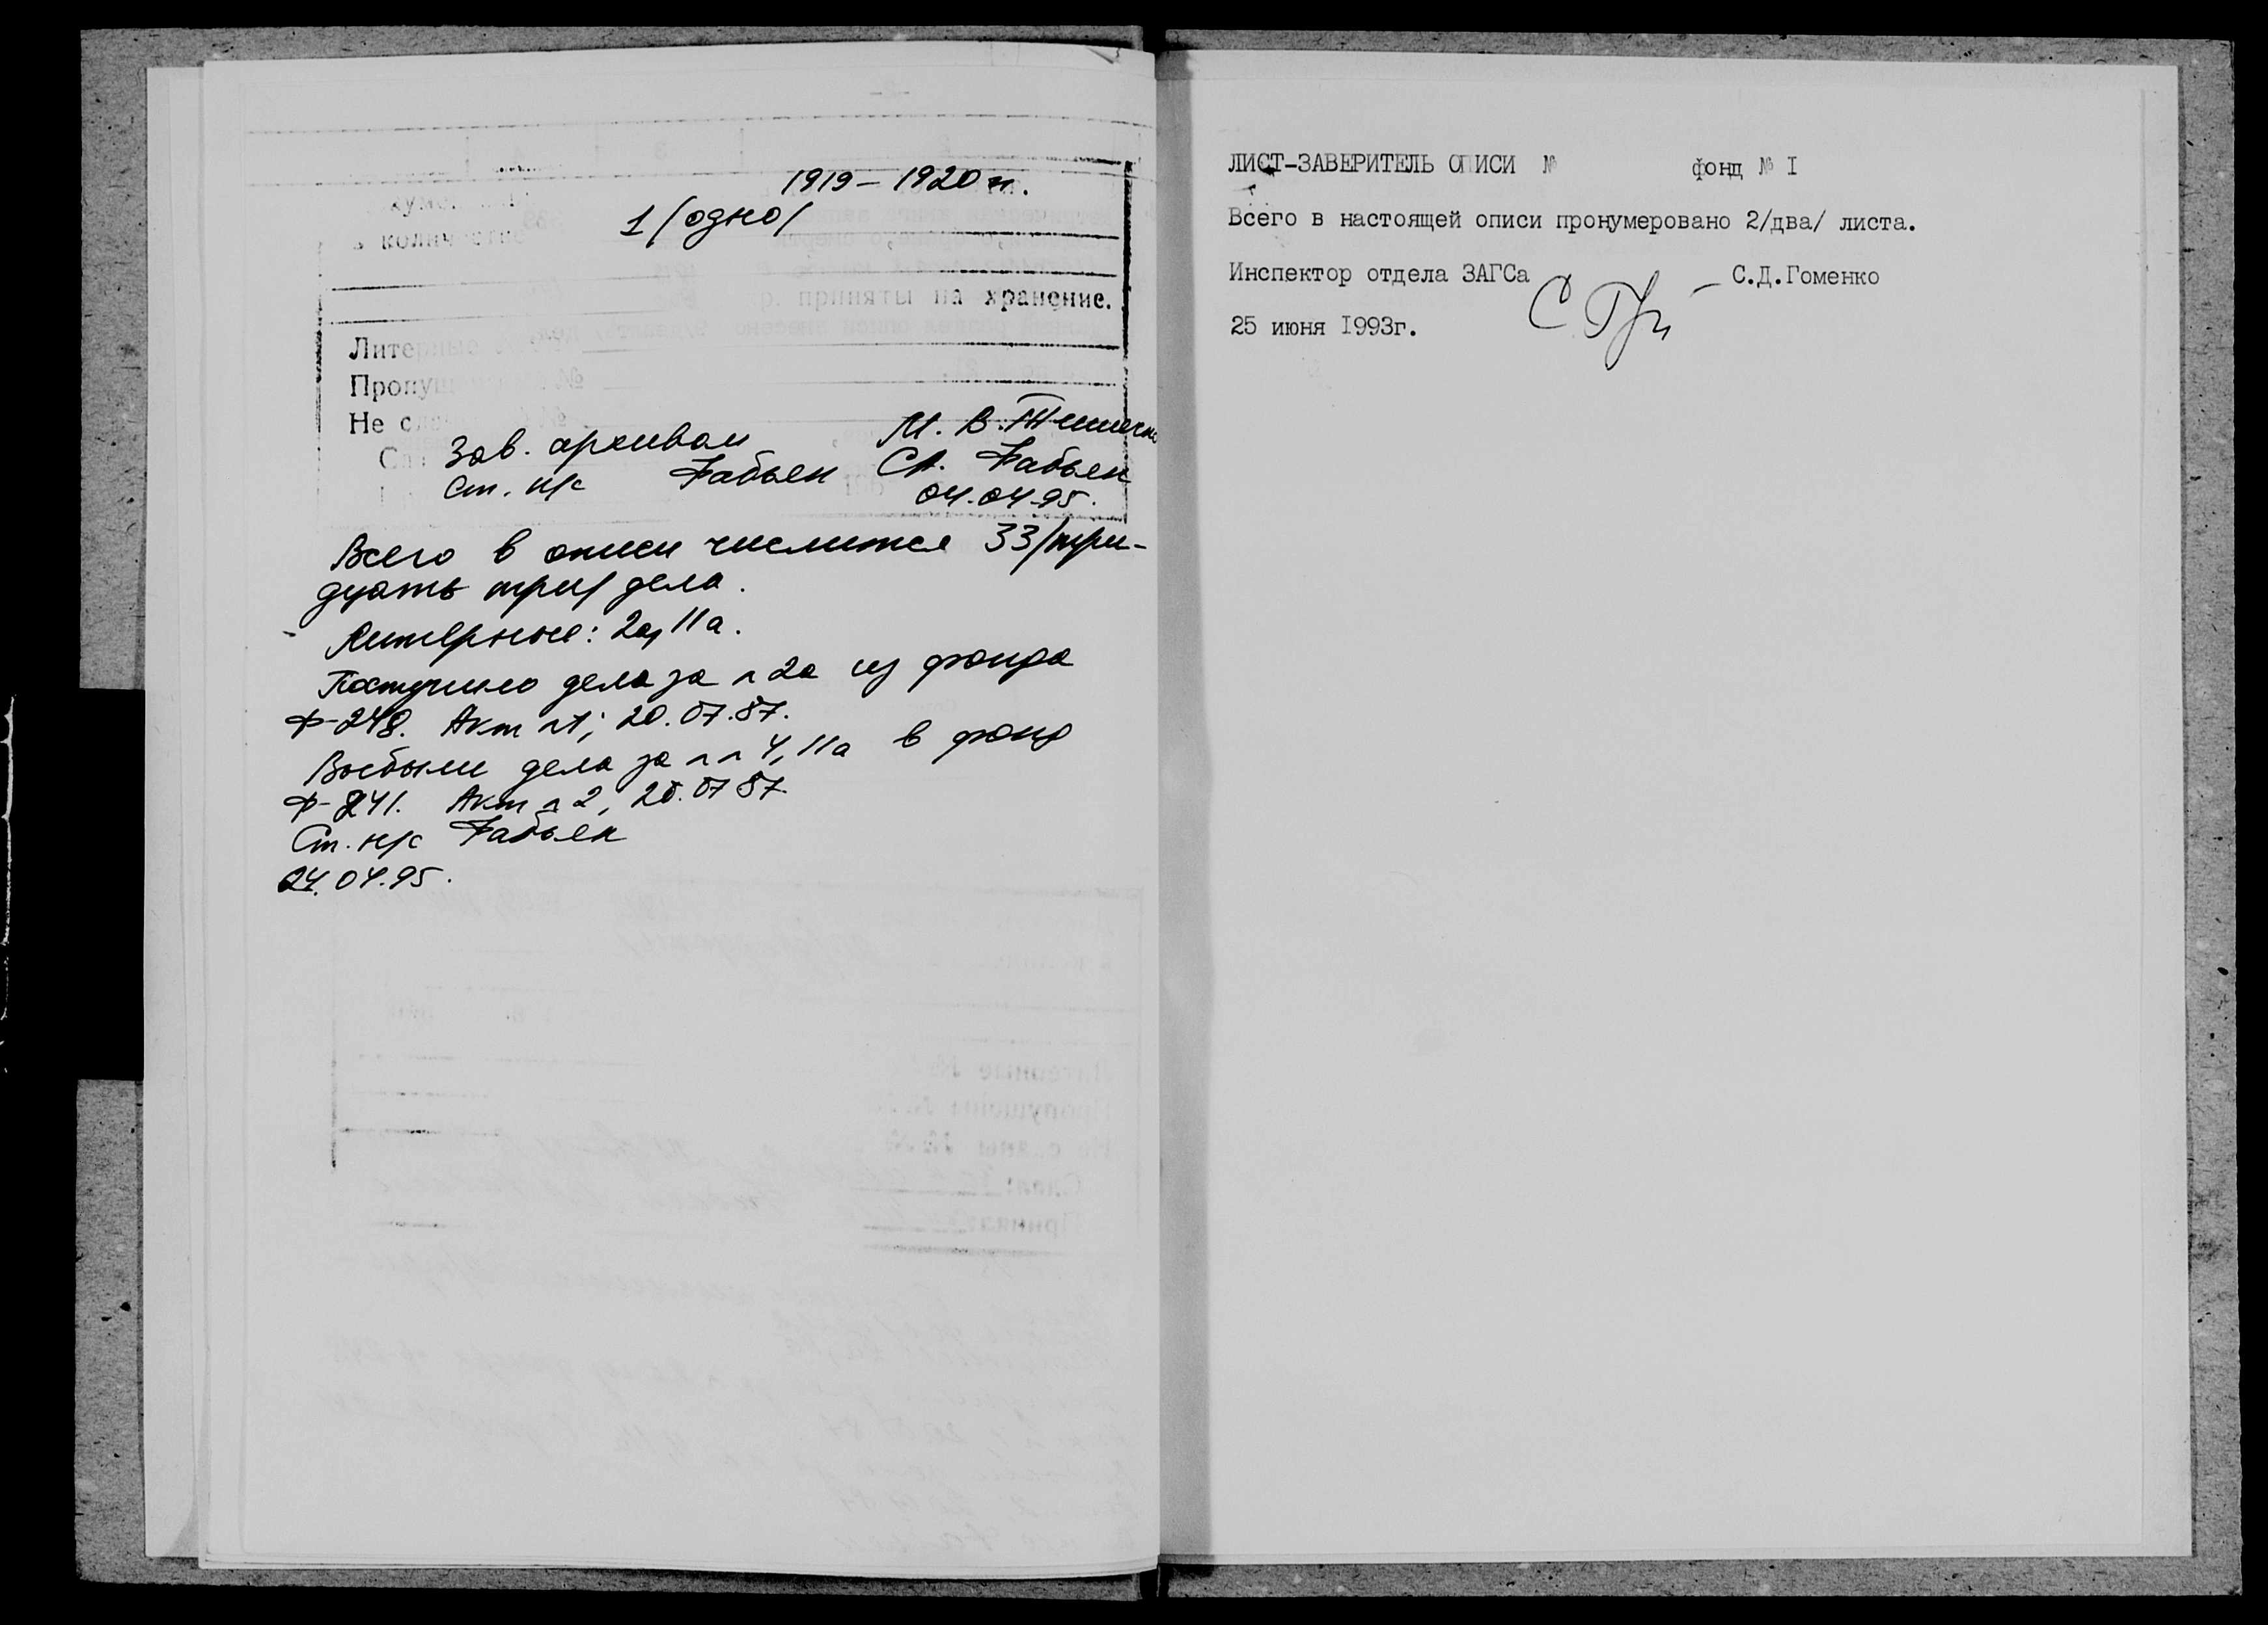 1919 – 1920 гг.
в количестве 1 /одно/
р. приняты на хранение.
Литерные
Не
Зав. архивом М. В.
Ст. н/с Фабьян С.А. Фабьян
04.04.95.
Всего в описи числится 33/три-
дцать три/ дела.
Литерные: 2а, 11а.
Поступило дело за № 2а из фонда
Ф-248. Акт №1, 20.07.87.
Выбыли дела за №№ 4, 11а в фонд
Ф-241. Акт № 2, 20.07.87.
Ст. н/с Фабьян
24.04.95.
ЛИСТ-ЗАВЕРИТЕЛЬ ОПИСИ № фонд № I
Всего в настоящей описи пронумеровано 2/два/ листа.
Инспектор отдела ЗАГСа – С.Д.Гоменко
25 июня I993г.